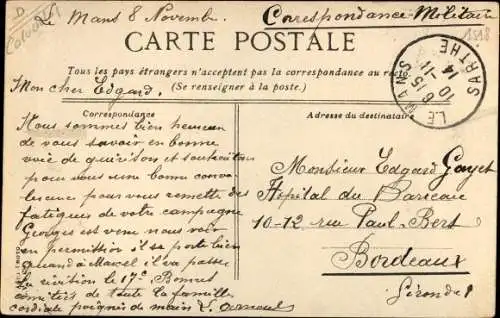 Le Mans 8 Novemb.
Correspondance Militaire
CARTE POSTALE
Tous les pays étrangers n'acceptent pas la correspondance au recto.
(Se renseigner à la poste.)
Mon cher Edgard.
Correspondance
Adresse du destinataire
LE MANS
SARTHE
6 15
10 - 11
14
Nous sommes bien heureux
de vous savoir en bonne
voie de guérison et souhaitons
pour vous une bonne conva
lescence pour vous remettre des
fatigues de votre campagne
Georges est venu nous voir
en permission il se porte bien
quand à Marcel il va passer
la révision le 17c Bonnes
amitiés de toute la famille
cordiale poignée de main
Monsieur Edgard Gayet
Hôpital du
10-12 rue Paul-Bert
Bordeaux
Gironde